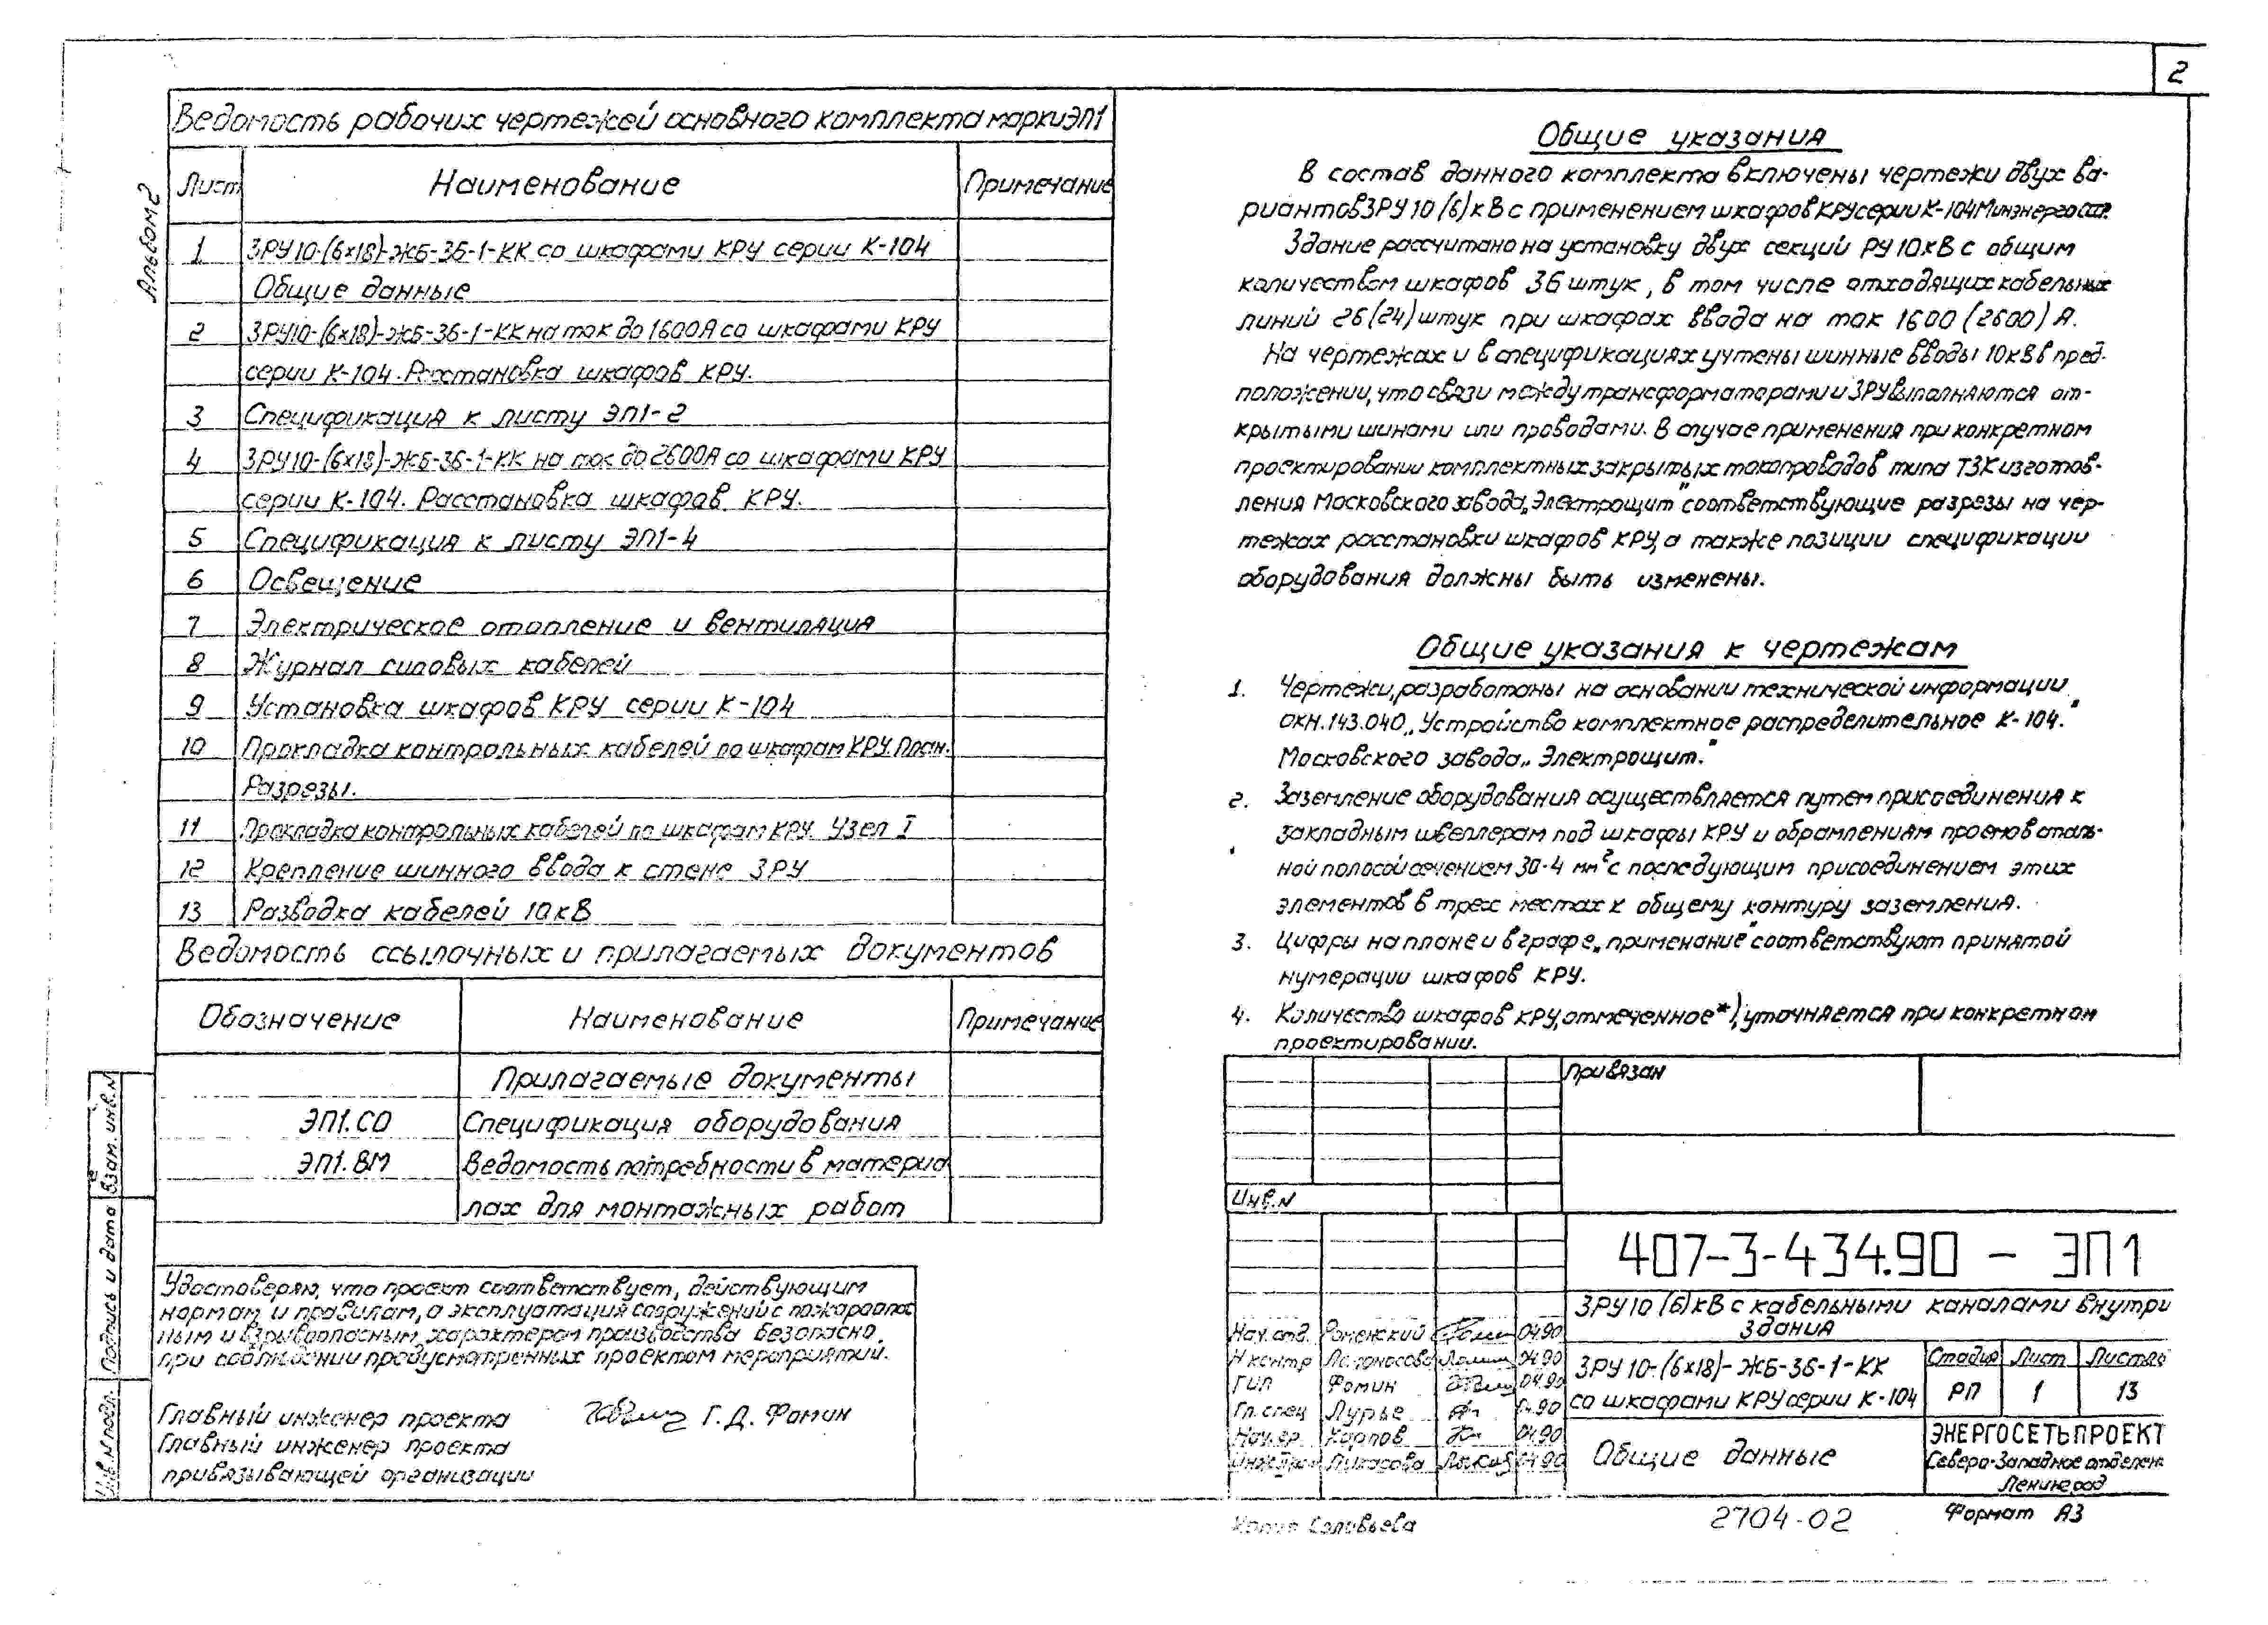 2
Альбом 2
Ведомость рабочих чертежей основного комплекта марки ЭП1
Лист Наименование Примечание
1 ЗРУ10-(6×18)-ЖБ-36-1-КК со шкафами КРУ серии К-104
Общие данные
2 ЗРУ10-(6×18)-ЖБ-36-1-КК на ток до 1600А со шкафами КРУ
серии К-104. Расстановка шкафов КРУ.
3 Спецификация к листу ЭП1-2
4 ЗРУ10-(6×18)-ЖБ-36-1-КК на ток до 2600А со шкафами КРУ
серии К-104. Расстановка шкафов КРУ.
5 Спецификация к листу ЭП1-4
6 Освещение
7 Электрическое отопление и вентиляция
8 Журнал силовых кабелей
9 Установка шкафов КРУ серии К-104
10 Прокладка контрольных кабелей по шкафам КРУ. План.
Разрезы.
11 Прокладка контрольных кабелей по шкафам КРУ. Узел I
12 Крепление шинного ввода к стене ЗРУ
13 Разводка кабелей 10кВ
Ведомость ссылочных и прилагаемых документов
Обозначение Наименование Примечание
Прилагаемые документы
ЭП1.СО Спецификация оборудования
ЭП1.ВМ Ведомость потребности в материа
лах для монтажных работ
Удостоверяю, что проект соответствует, действующим
нормам и правилам, а эксплуатация сооружений с пожароопас
ным и взрывоопасным характером производства безопасно
при соблюдении предусмотренных проектом мероприятий.
Главный инженер проекта Г.Д. Фомин
Главный инженер проекта
привязывающей организации
Взам. инв. N
Подпись и дата
Инв. N подл.
Общие указания
В состав данного комплекта включены чертежи двух ва-
риантов ЗРУ 10(6)кВ с применением шкафов КРУ серии К-104 Минэнерго СССР.
Здание рассчитано на установку двух секций РУ 10кВ с общим
количеством шкафов 36 штук, в том числе отходящих кабельных
линий 26(24) штук при шкафах ввода на ток 1600 (2600) А.
На чертежах и в спецификациях учтены шинные вводы 10кВ в пред-
положении, что связи между трансформаторами и ЗРУ выполняются от-
крытыми шинами или проводами. В случае применения при конкретном
проектировании комплектных закрытых токопроводов типа ТЗК изготов-
ления Московского завода „Электрощит" соответствующие разрезы на чер-
тежах расстановки шкафов КРУ, а также позиции спецификации
оборудования должны быть изменены.
Общие указания к чертежам
1. Чертежи, разработаны на основании технической информации
ОКН.143.040 „Устройство комплектное распределительное К-104."
Московского завода „Электрощит."
2. Заземление оборудования осуществляется путем присоединения к
закладным швеллерам под шкафы КРУ и обрамлениям проемов сталь-
ной полосой сечением 30·4 мм² с последующим присоединением этих
элементов в трех местах к общему контуру заземления.
3. Цифры на плане и в графе „примечание" соответствуют принятой
нумерации шкафов КРУ.
4. Количество шкафов КРУ, отмеченное *), уточняется при конкретном
проектировании.
Привязан
Инв.N
407-3-434.90 – ЭП1
ЗРУ 10 (6)кВ с кабельными каналами внутри
здания
Нач. отд. Роменский 04.90
Н контр Ломоносова 04.90
ГИП Фомин 04.90
Гл. спец Лурье 04.90
Нач. гр. Карпов 04.90
04.90
ЗРУ 10-(6×18)-ЖБ-36-1-КК
со шкафами КРУ серии К-104
Стадия Лист Листов
РП 1 13
Общие данные
ЭНЕРГОСЕТЬПРОЕКТ
Северо-Западное отделен.
Ленинград
Копир Соловьева
2704-02
Формат А3